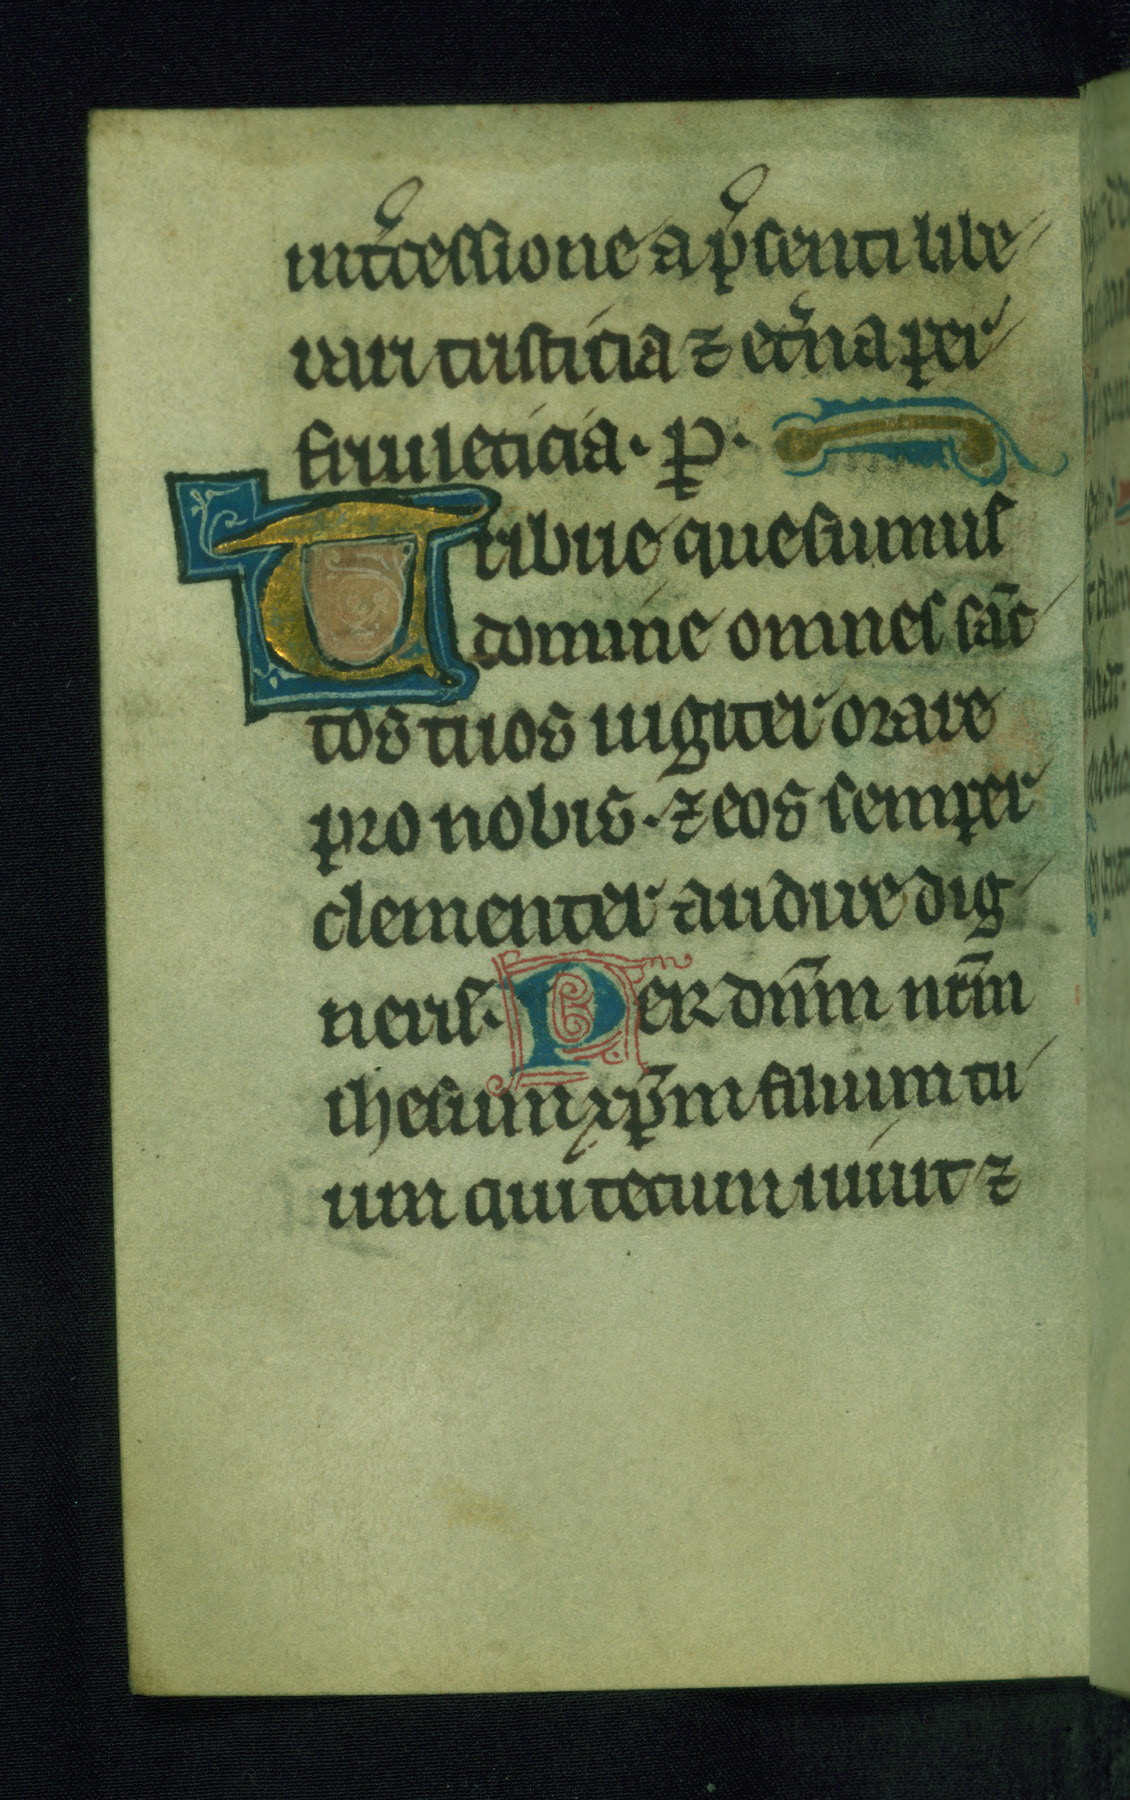 intͥcessione a p̾senti libe
rari tristicia ⁊ et̾na per
frui leticia. p̲.
Tribue quesumus
domine omnes sāc
tos tuos iugiter orare
pro nobis. ⁊ eos semper
clementer audire dig
neris. Per dn̄m nr̄m
ihesum xp̄m filium tu
um qui tecum uiuit ⁊